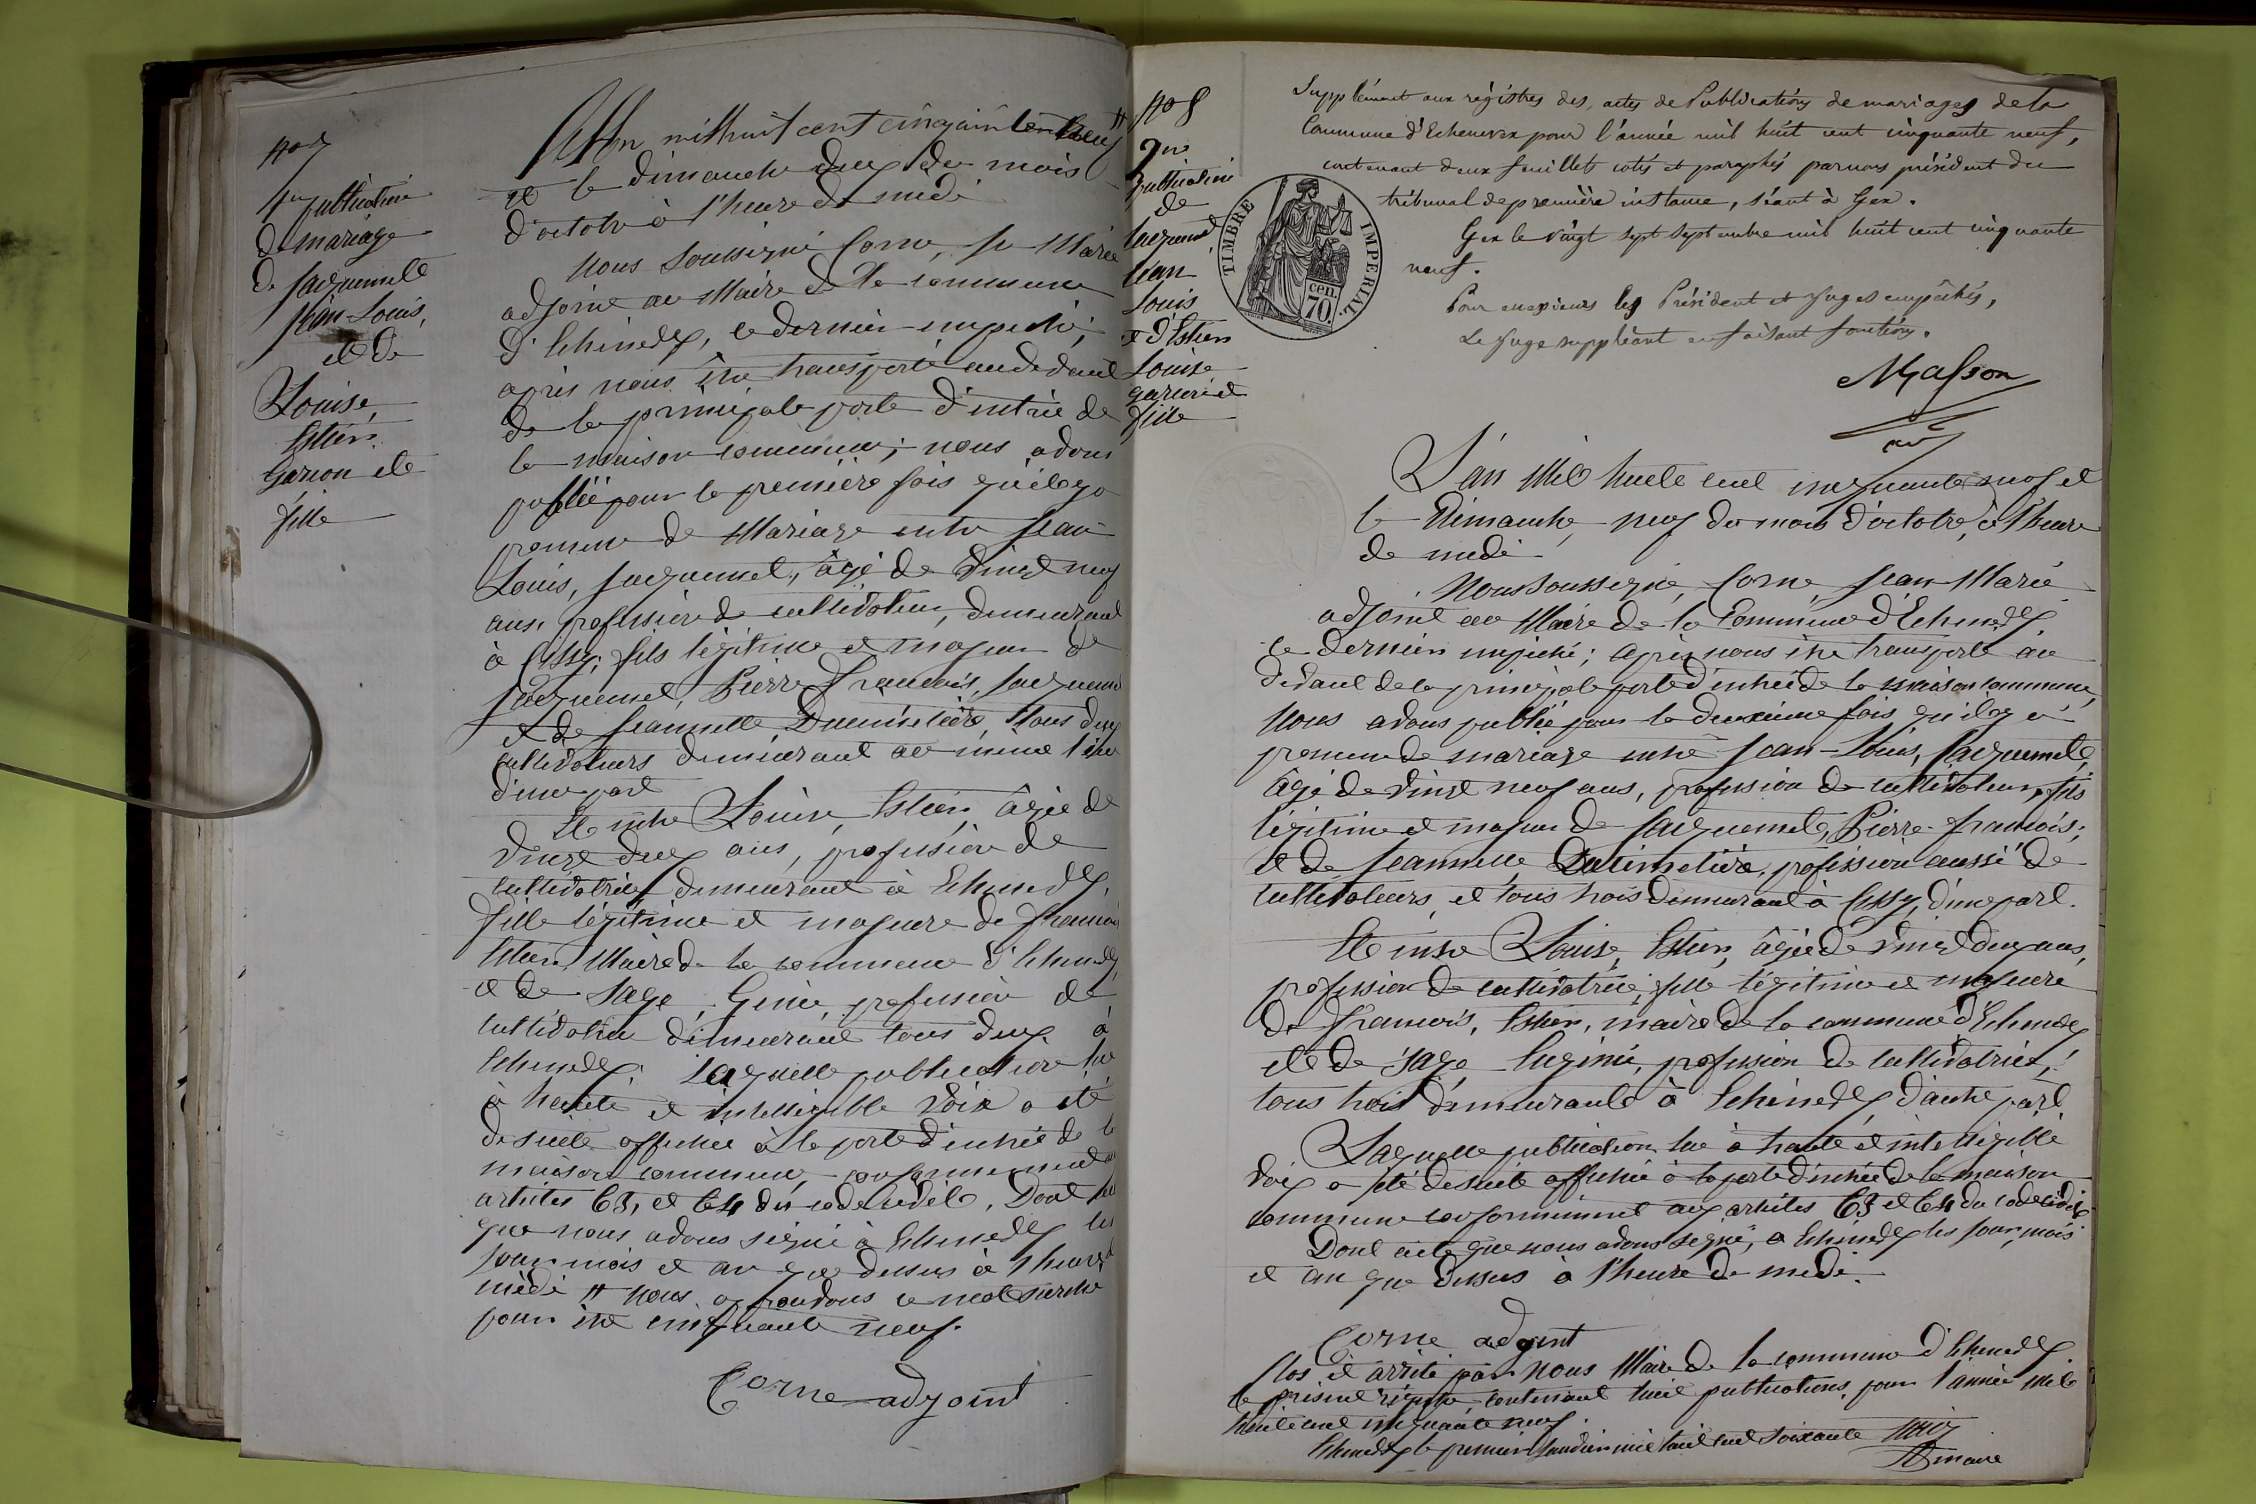 No 7
1re publication
de mariage
de Jacquemet
Jean-Louis,
et de
Louise,
Estier
garçon et
fille
L'An mil huit cent cinquante neuf #
et le dimanche deux du mois
d'octobre à l'heure de midi
Nous soussigné Corne, Jn Marie
adjoint au Maire de la commune
d'Echenevex, ce dernier empêché;
après nous être transporté au devant
de la principale porte d'entrée de
la maison commune; nous avons
publié pour la première fois qu'il y a
promesse de Mariage entre Jean
Louis, Jacquemet, âgé de vingt neuf
ans, profession de cultivateur, demeurant
à Cessy, fils légitime et majeur de
Jacquemet, Pierre François, Jacquemet
et de Jeannette Ducimetière, tous deux
cultivateurs demeurant au même lieu
d'une part
Et entre Louise, Estier, âgée de
vingt deux ans, profession de
cultivatrice, demeurant à Echenevex,
fille légitime et majeure de François
Estier, Maire de la commune d'Echenevex,
et de Sage, Génie, profession de
cultivateur demeurant tous deux à
Echenevex. Laquelle publication lue
à haute et intelligible voix a été
de suite affichée à la porte d'entrée de la
maison commune, conformément aux
articles 63, et 64 du code civil. Dont acte
que nous avons signé à Echenevex les
jour mois et an que dessus à l'heure de
midi # nous approuvons le mot surchargé
pour être cinquante neuf.
Corne adjoint
No 8
2me
publication
de
Jacquemet
Jean
Louis
et d'Estier
Louise
garçon et
fille
Supplément aux régistres des actes de Publications de mariages de la
Commune d'Echenevex pour l'année mil huit cent cinquante neuf,
contenant deux feuillets cotés et paraphés par nous président du
tribunal de première instance, séant à Gex.
Gex le vingt sept septembre mil huit cent cinquante
neuf.
Pour messieurs les Président et Juges empêchés,
Le Juge suppléant en faisant fonctions.
TIMBRE IMPERIAL
cen.
70.
MGasson
L'an Mil huit cent cinquante neuf et
le Dimanche, neuf du mois d'octobre, à l'heure
de midi
Nous soussigné, Corne, Jean-Marie
adjoint au Maire de la Commune d'Echenevex
ce dernier empêché; après nous être transporté au
devant de la principale porte d'entrée de la maison commune,
Nous avons publié pour la deuxième fois qu'il y a
promesse de mariage entre Jean-Louis, Jacquemet,
âgé de vingt neuf ans, profession de cultivateur, fils
légitime et majeur de Jacquemet, Pierre-François;
et de Jeannette Ducimetière, profession aussi de
cultivateurs, et tous trois demeurant à Cessy, d'une part.
Et entre Louise, Estier, âgée de vingt deux ans,
profession de cultivatrice, fille légitime et majeure
de François, Estier, maire de la commune d'Echenevex
et de Sage Eugénie, profession de cultivatrice,
tous trois demeurants à Echenevex d'autre part.
Laquelle publication lue à haute et intelligible
voix a été de suite affichée à la porte d'entrée de la maison
commune conformément aux articles 63 et 64 du code civil
Dont acte que nous avons signé, à Echenevex les jour, mois
et an que dessus à l'heure de midi.
Corne adjoint
Clos et arrêté par Nous Maire de la commune d'Echenevex
le présent régistre contenant huit publications pour l'année mil
huit cent cinquante neuf.
Echenevex le premier Janvier mil huit cent soixante
maire